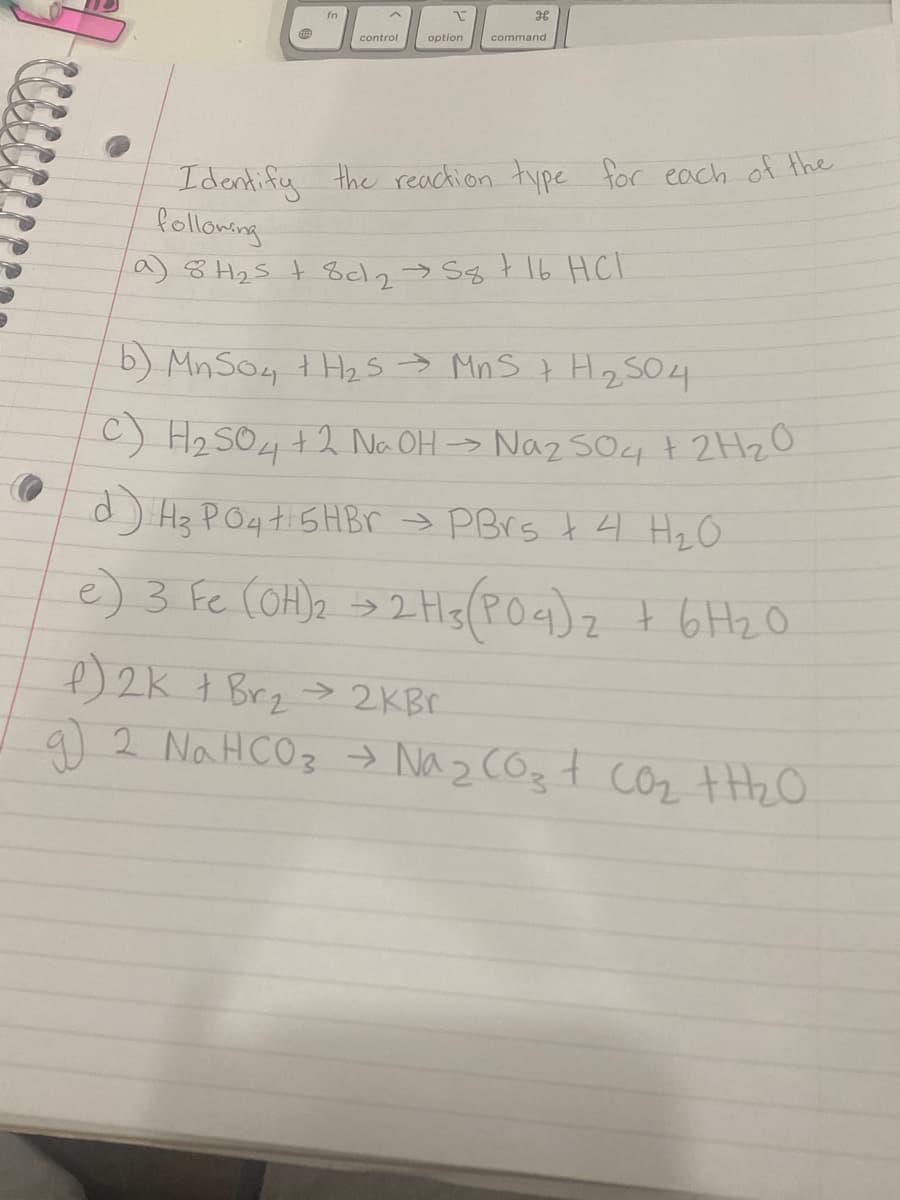 fn
control option command
Identify the reaction type for each of the
following
a) 8 H₂S + 8Cl₂ → S₈ + 16 HCl
b) MnSO₄ + H₂S → MnS + H₂SO₄
c) H₂SO₄ + 2 NaOH → Na₂SO₄ + 2H₂O
d) H₃PO₄ + 5HBr → PBr₅ + 4 H₂O
e) 3 Fe(OH)₂ → 2H₃(PO₄)₂ + 6H₂O
f) 2K + Br₂ → 2KBr
g) 2 NaHCO₃ → Na₂CO₃ + CO₂ + H₂O